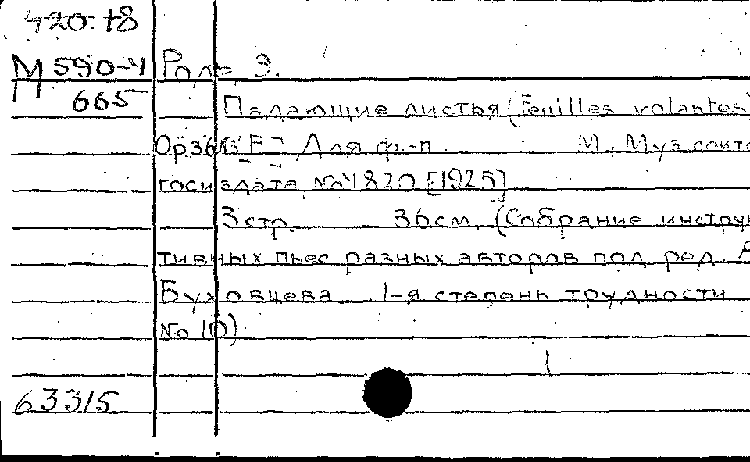 420.18
М 590-4 Роль Э.
665 Падающие листья (Feuilles volantes)
Ор 36 Для ф.-п. М., Муз сект
госиздата, No 4820 [1925]
3 стр. 36 см. (Собрание инструк
тивных пьес разных авторов под ред.
Буховцева 1-я степень трудности
No 10)
63315